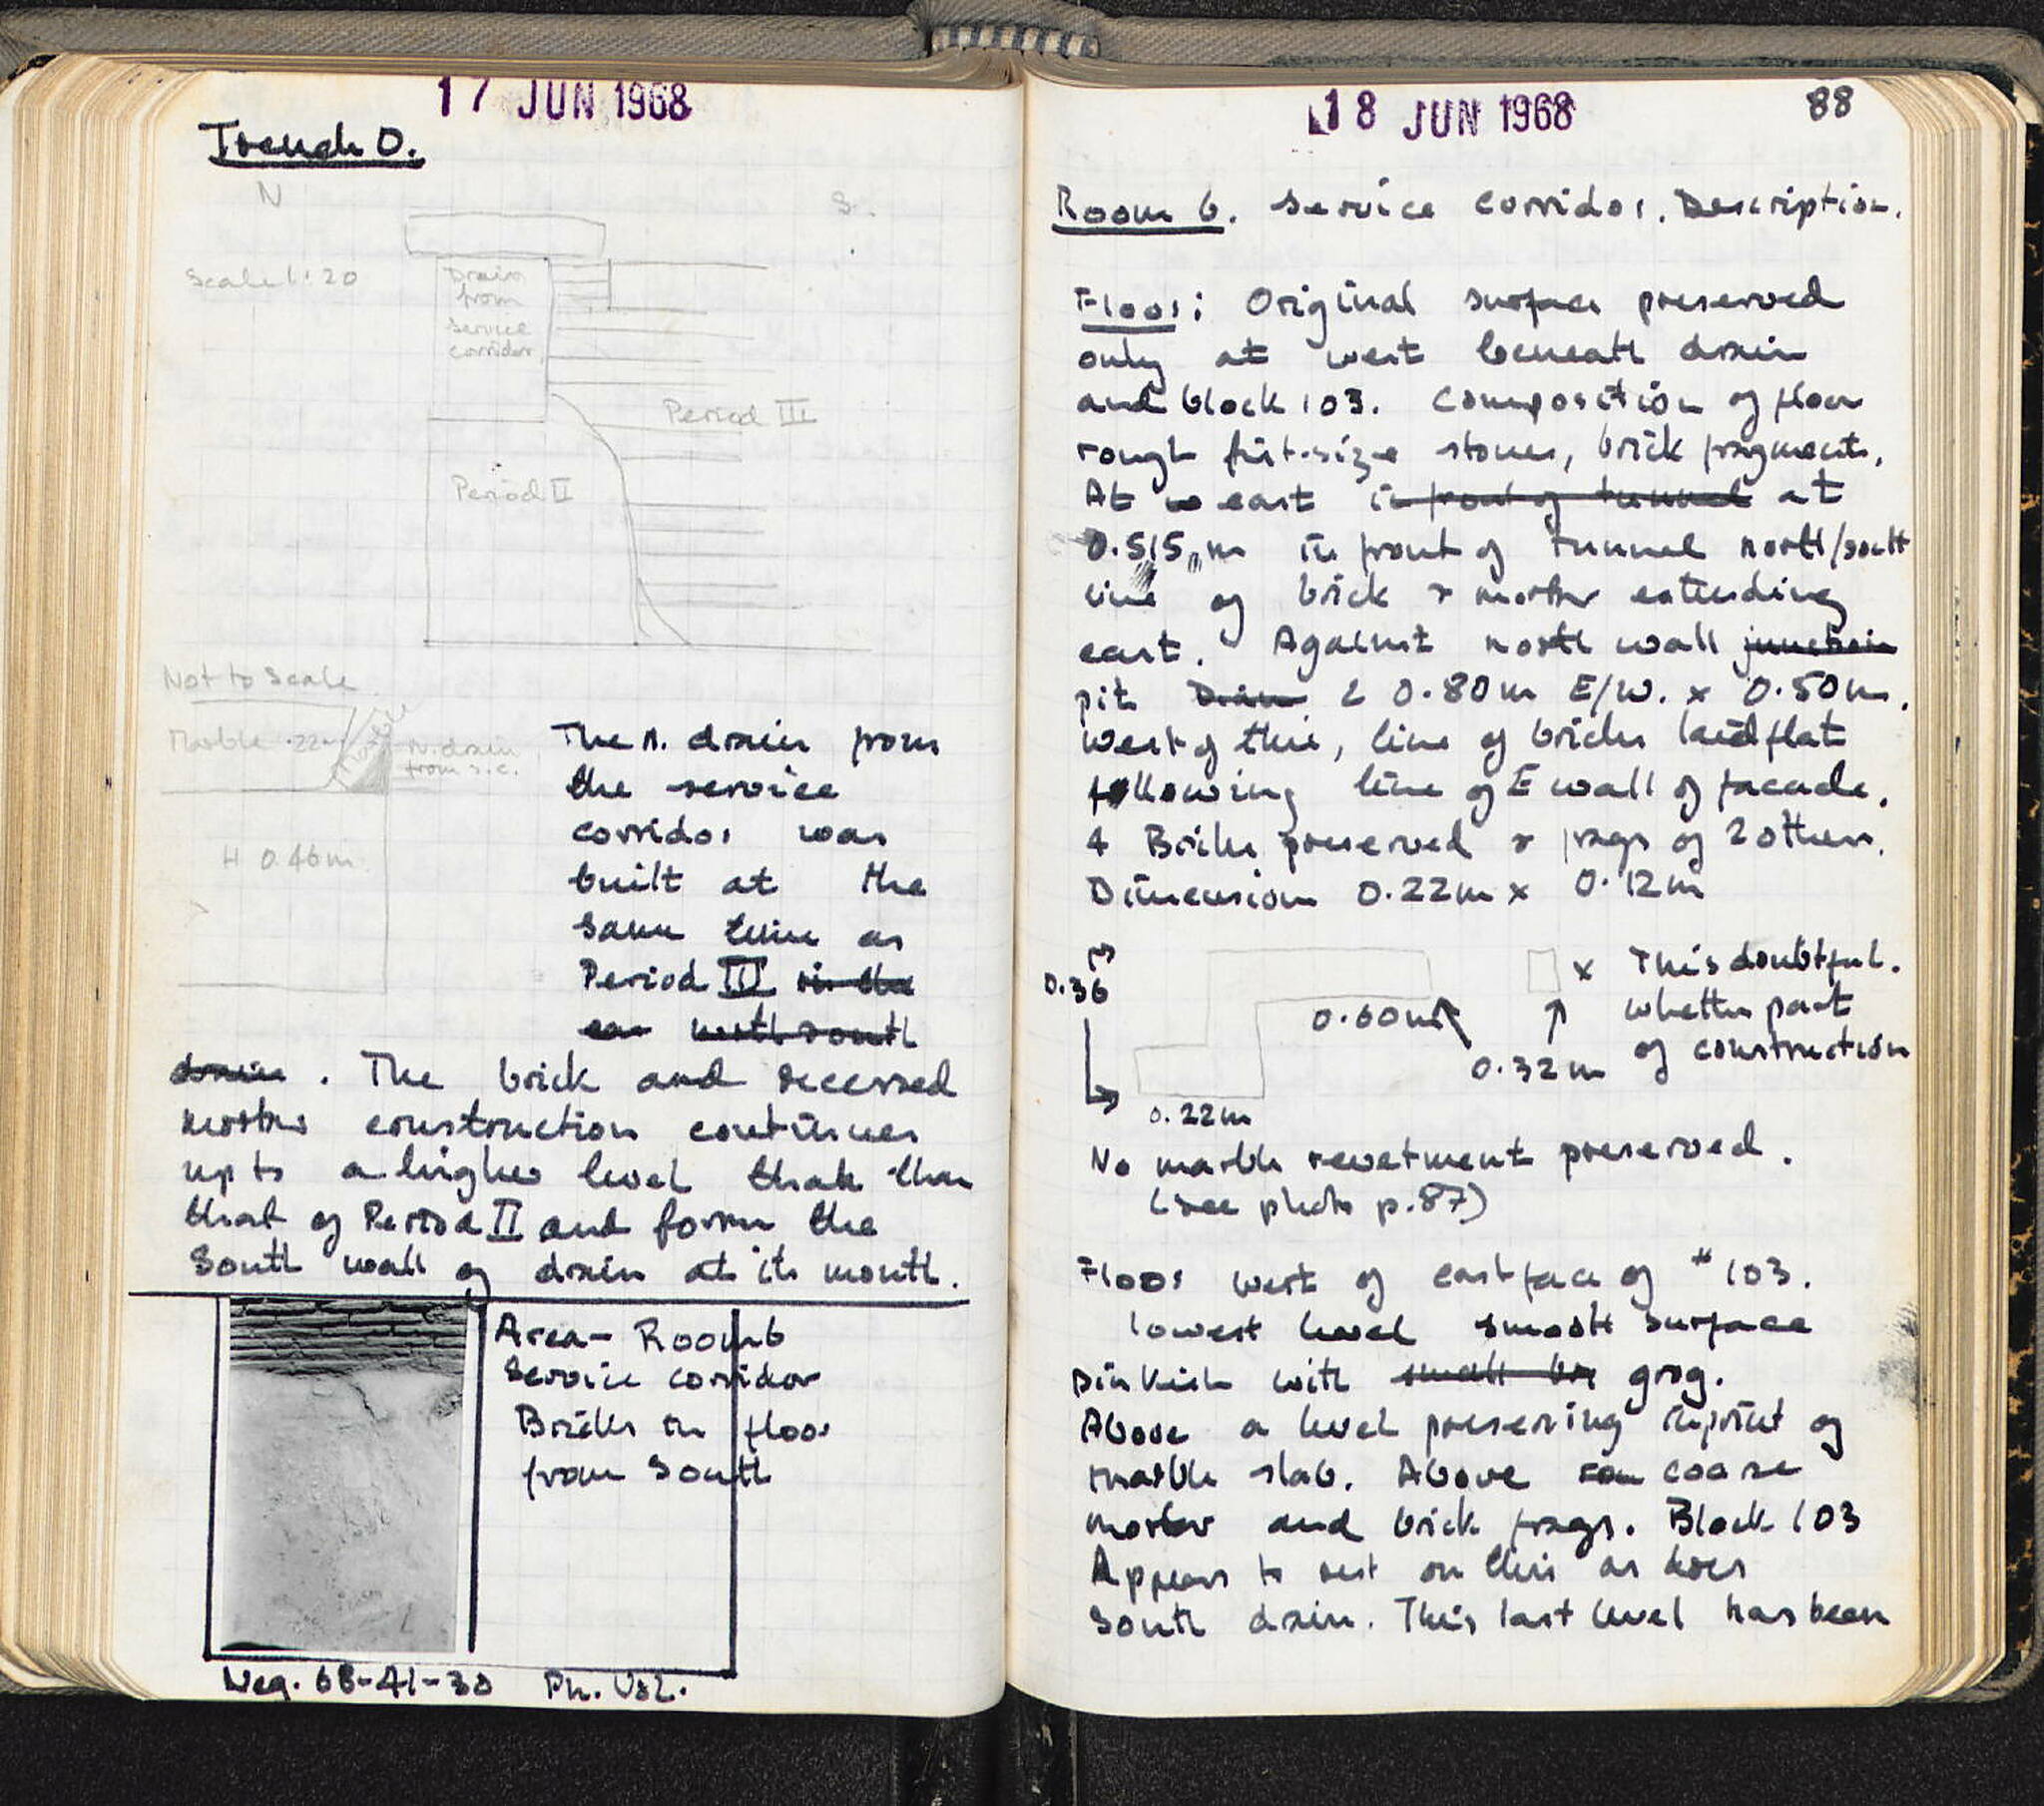 17 JUN 1968
Trench O.
N
S.
Scale 1:20
Drain
from
service
corridor
Period III
Period II
Not to Scale
Marble .22
N. drain
from s.c.
H 0.46m
The N. drain from
the service
corridor was
built at the
same time as
Period III in the
north south
drain. The brick and recessed
mortar construction continues
up to a higher level than
that of Period II and forms the
South wall of drain at its mouth.
Area - Room 6
Service corridor
Bricks in floor
from South
Neg. 68-41-30 Ph. Vol.
18 JUN 1968
88
Room 6. Service corridor. Description.
Floor: Original surface preserved
only at west beneath drain
and block 103. Composition of floor
rough fist-size stones, brick fragments.
At east in front of tunnel at
0.515 m in front of tunnel north/south
line of brick & mortar extending
east. Against north wall junction
pit Drain 0.80m E/W. x 0.50m.
West of this, line of bricks laid flat
following line of E wall of facade.
4 Bricks preserved & frags of 2 others.
Dimensions 0.22m x 0.12m
0.36
0.60m
x This doubtful.
whether part
of construction
0.32m
0.22m
No marble revetment preserved.
(see photo p.87)
Floor west of east face of #103.
lowest level smooth surface
Pinkish with small grog.
Above a level preserving imprint of
marble slab. Above coarse
mortar and brick frags. Block 103
Appears to rest on this as does
South drain. This last level has been